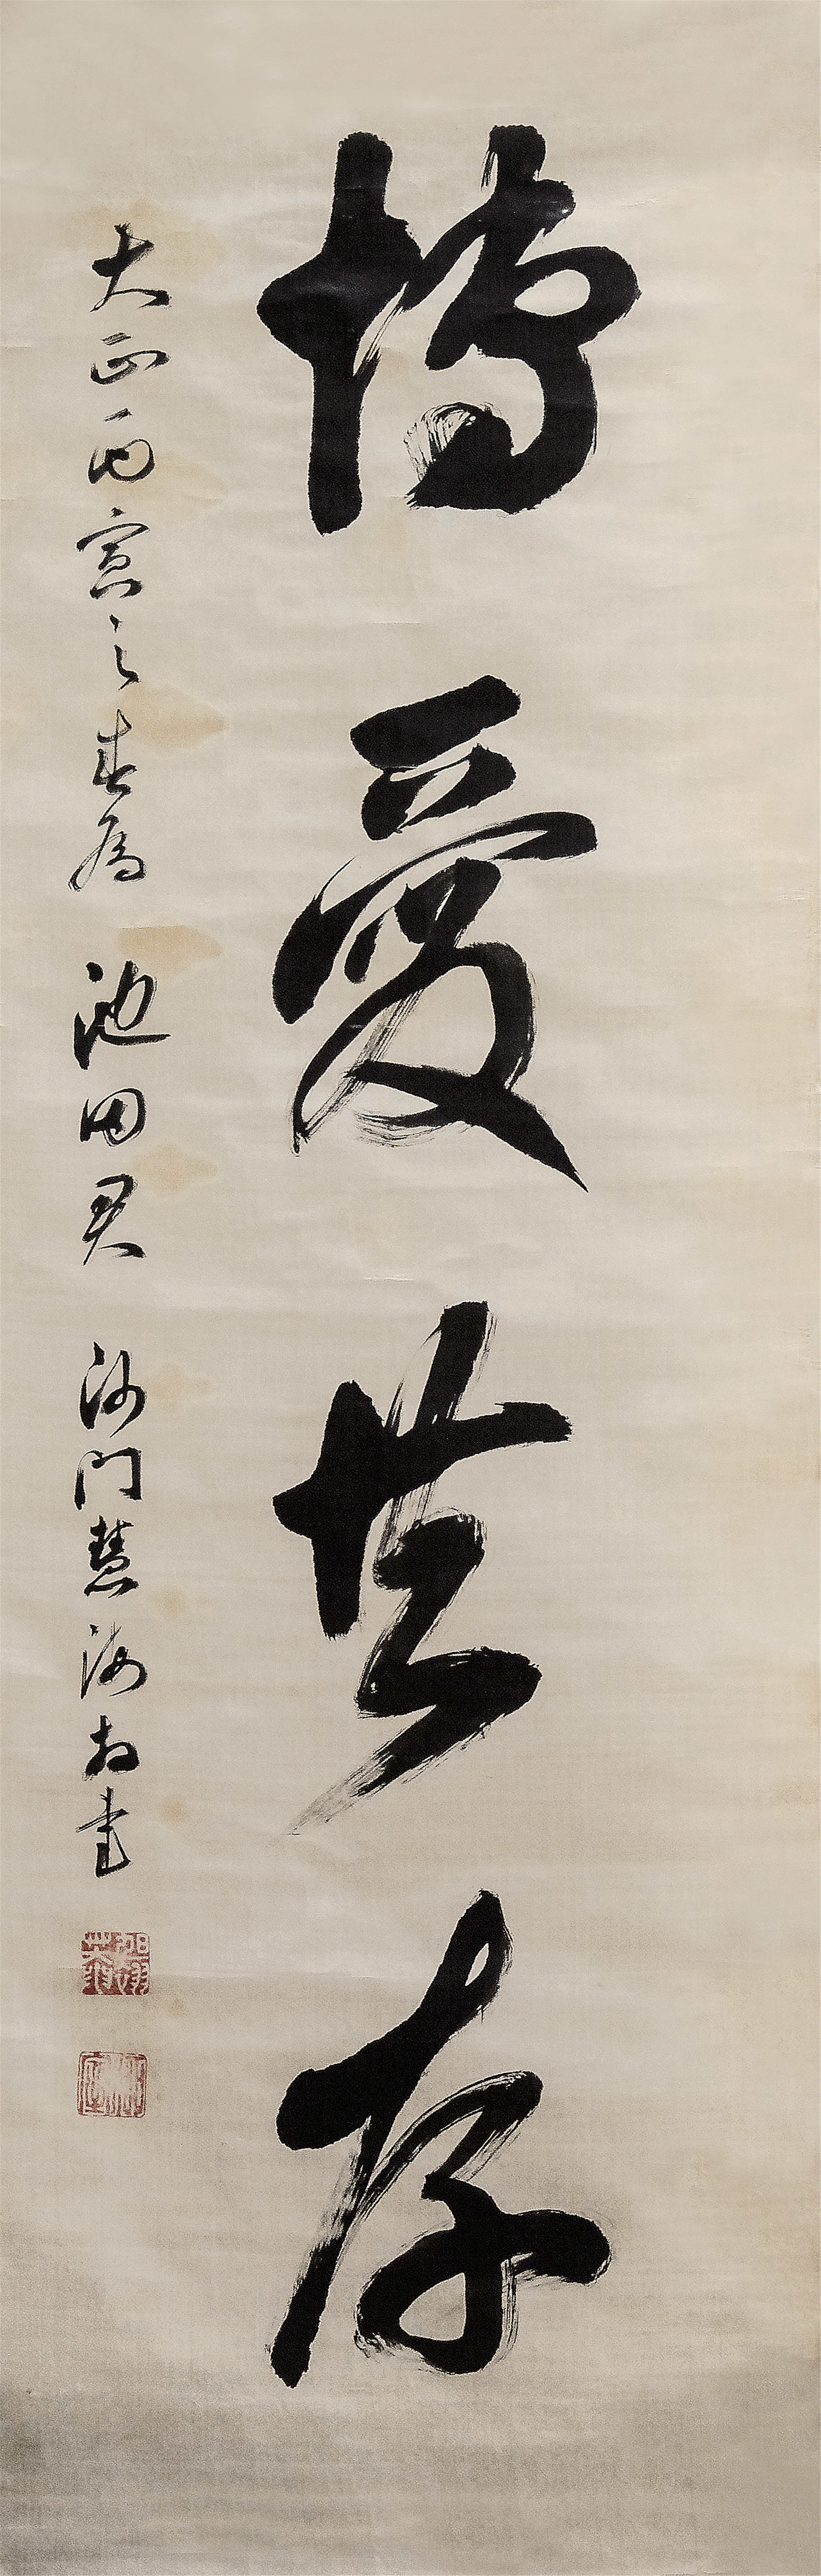 博愛共存
大正丙寅之春為 池田君 沙門慧海書